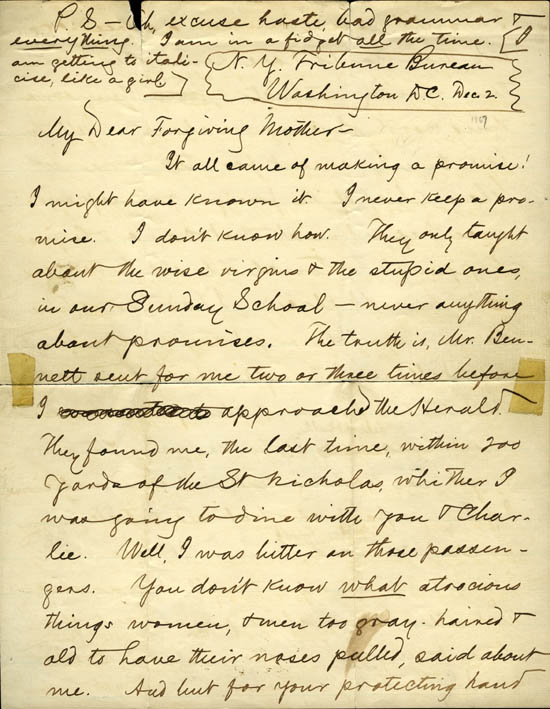 P. S – Oh, excuse haste, bad grammar &
everything. I am in a fidget all the time. [I
am getting to itali-
cise, like a girl.]
N. Y. Tribune Bureau
Washington D.C. Dec 2.
1867
My Dear Forgiving Mother–
It all came of making a promise!
I might have known it. I never keep a pro-
mise. I don't know how. They only taught
about the wise virgins & the stupid ones,
in our Sunday School – never anything
about promises. The truth is, Mr. Ben-
nett sent for me two or three times before
I approached the Herald.
They found me, the last time, within 200
yards of the St Nicholas, whither I
was going to dine with you & Char-
lie. Well, I was bitter on those passen-
gers. You don't know what atrocious
things women, & men too gray-haired &
old to have their noses pulled, said about
me. And but for your protecting hand